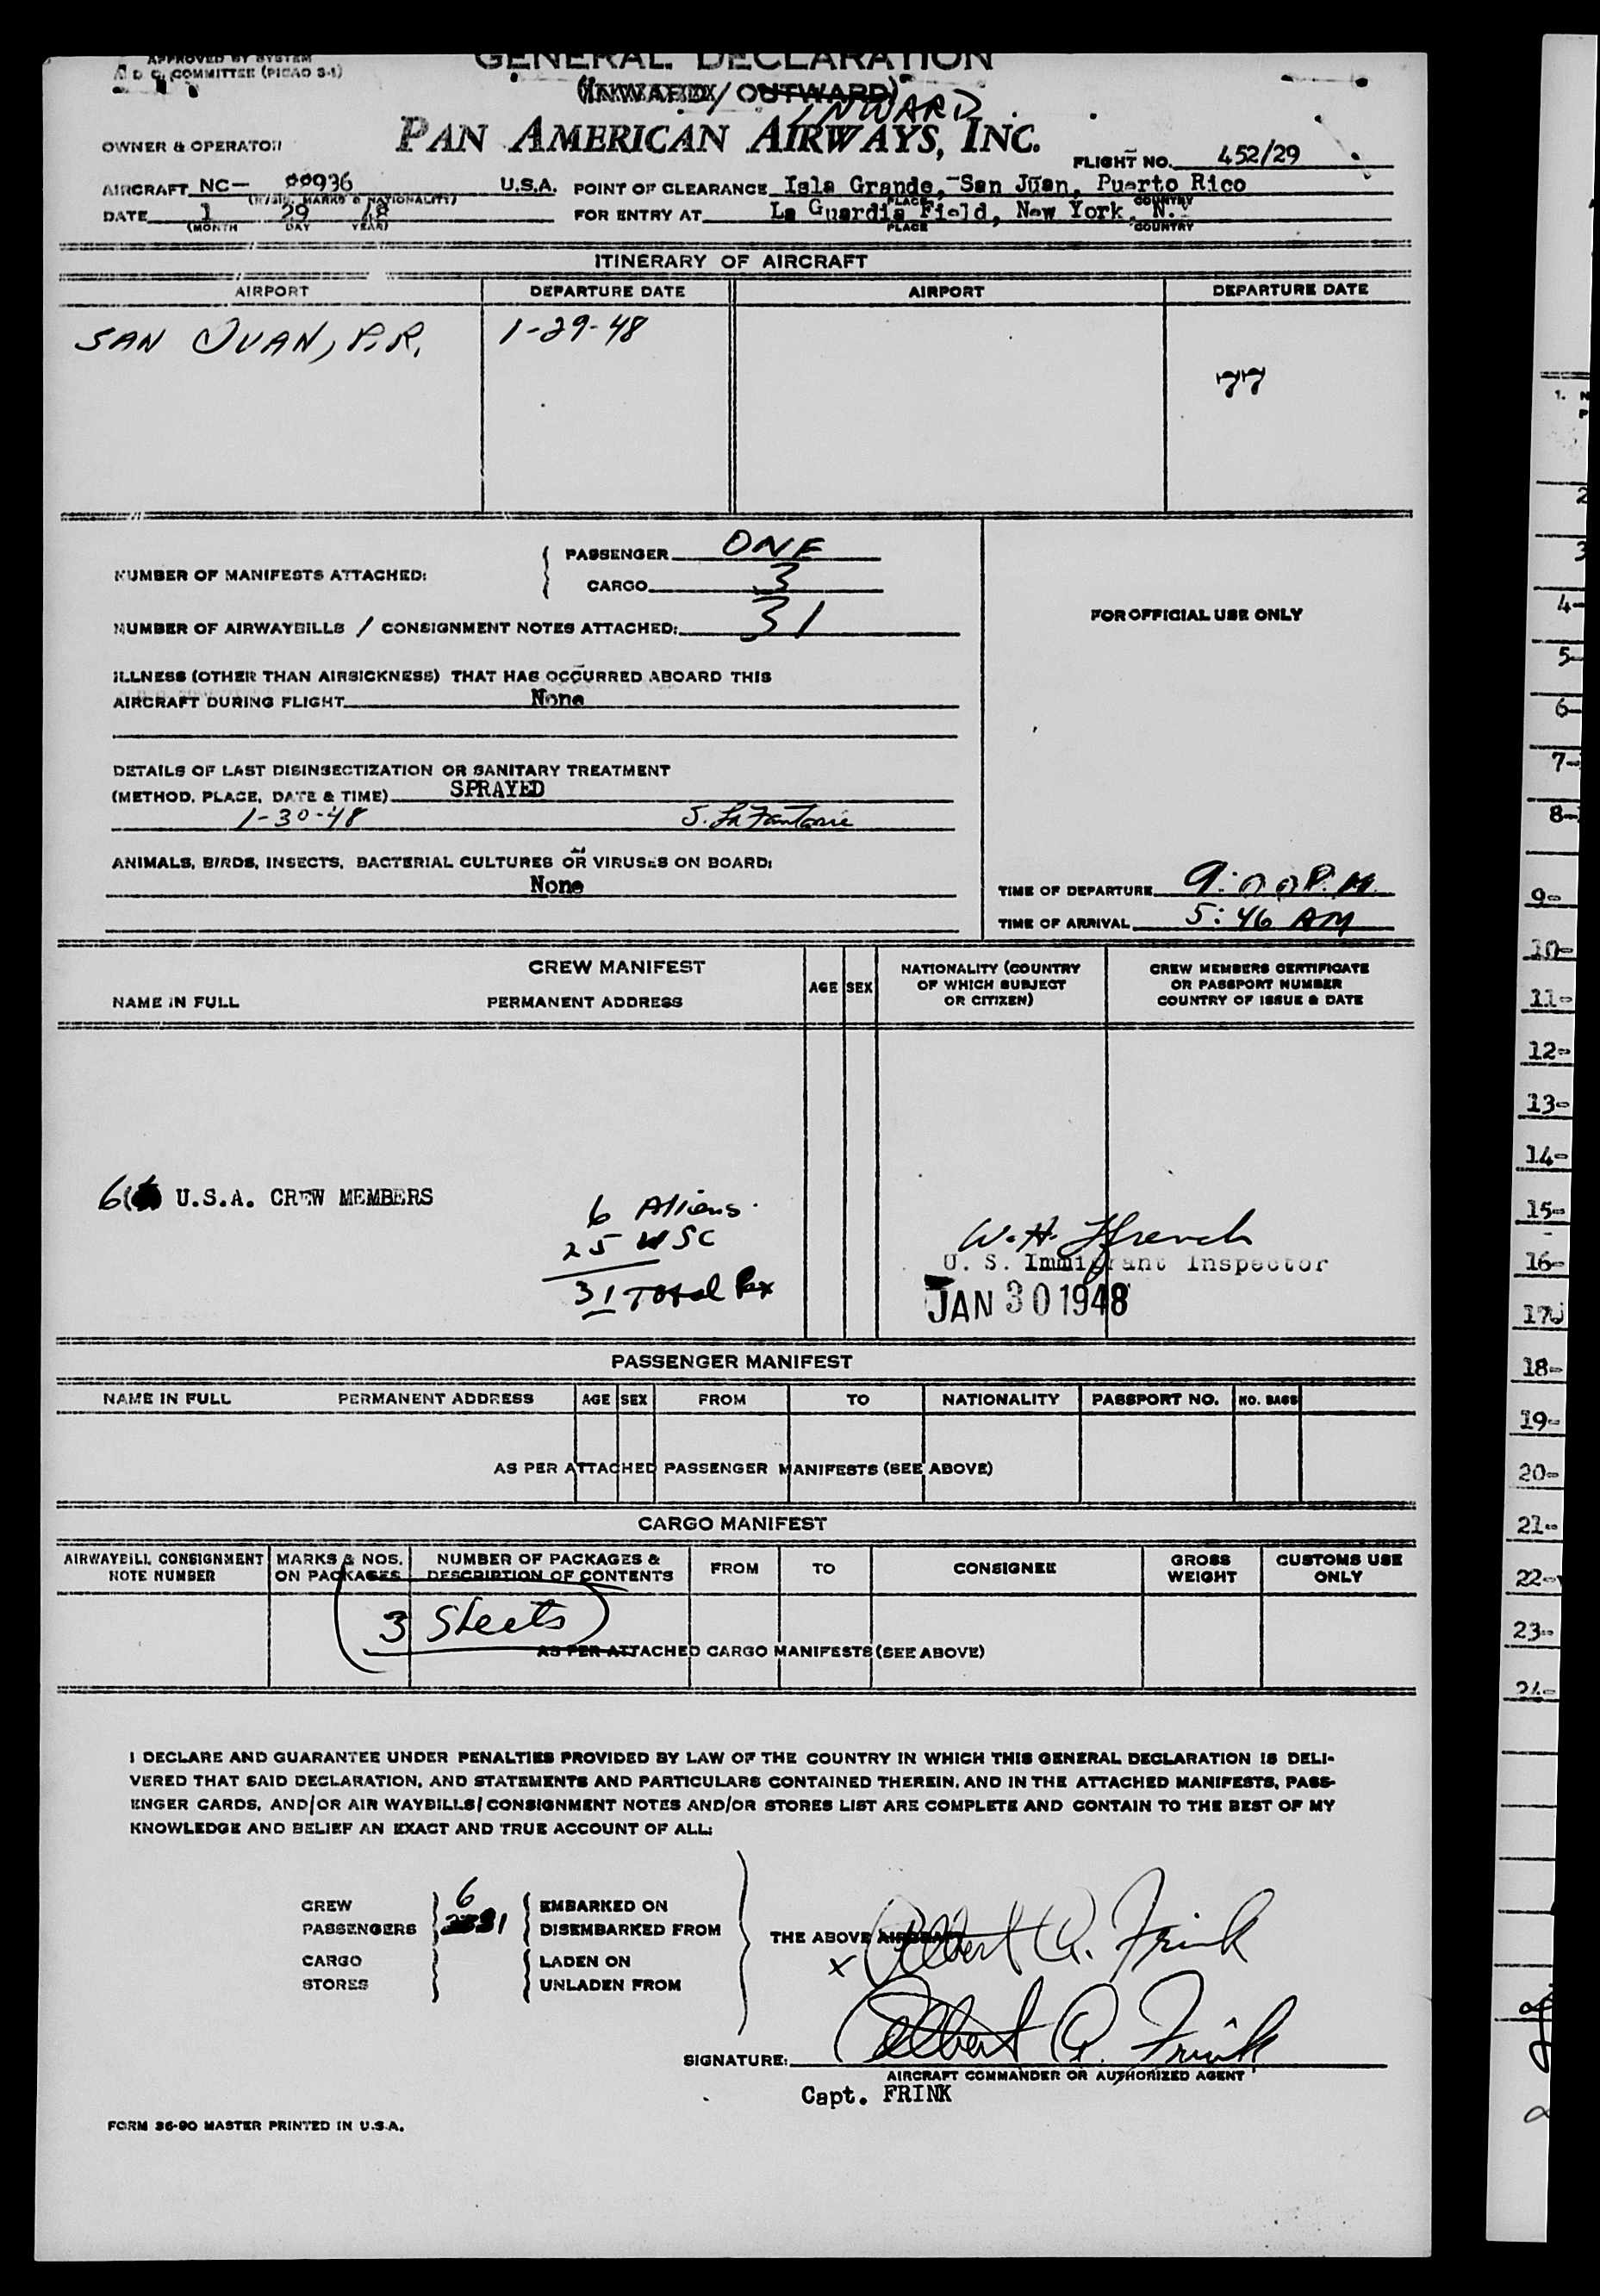 APPROVED BY SYSTEM
D C. COMMITTEE (PICAO S-1)
GENERAL DECLARATION
(INWARD / OUTWARD)
INWARD
OWNER & OPERATOR
PAN AMERICAN AIRWAYS, INC.
FLIGHT NO. 452/29
AIRCRAFT NC- 00936 U.S.A. POINT OF CLEARANCE Isla Grande, San Juan, Puerto Rico
MARKS & NATIONALITY) PLACE COUNTRY
DATE 1 29 48 FOR ENTRY AT La Guardia Field, New York, N.Y.
(MONTH DAY YEAR) PLACE COUNTRY
ITINERARY OF AIRCRAFT
AIRPORT DEPARTURE DATE AIRPORT DEPARTURE DATE
SAN JUAN, P.R. 1-29-48
77
NUMBER OF MANIFESTS ATTACHED: PASSENGER ONE
CARGO 3
NUMBER OF AIRWAYBILLS / CONSIGNMENT NOTES ATTACHED: 31
FOR OFFICIAL USE ONLY
ILLNESS (OTHER THAN AIRSICKNESS) THAT HAS OCCURRED ABOARD THIS
AIRCRAFT DURING FLIGHT None
DETAILS OF LAST DISINSECTIZATION OR SANITARY TREATMENT
(METHOD, PLACE, DATE & TIME) SPRAYED
1-30-48 S. La Fantasie
ANIMALS, BIRDS, INSECTS, BACTERIAL CULTURES OR VIRUSES ON BOARD:
None
TIME OF DEPARTURE 9:00 P.M.
TIME OF ARRIVAL 5:46 AM
CREW MANIFEST
NAME IN FULL PERMANENT ADDRESS AGE SEX NATIONALITY (COUNTRY OF WHICH SUBJECT OR CITIZEN) CREW MEMBERS CERTIFICATE OR PASSPORT NUMBER COUNTRY OF ISSUE & DATE
6 U.S.A. CREW MEMBERS
6 Aliens
25 USC
31 Total Px
W. H. French
U. S. Immigrant Inspector
JAN 30 1948
PASSENGER MANIFEST
NAME IN FULL PERMANENT ADDRESS AGE SEX FROM TO NATIONALITY PASSPORT NO. NO. BAGS
AS PER ATTACHED PASSENGER MANIFESTS (SEE ABOVE)
CARGO MANIFEST
AIRWAYBILL CONSIGNMENT NOTE NUMBER MARKS & NOS. ON PACKAGES NUMBER OF PACKAGES & DESCRIPTION OF CONTENTS FROM TO CONSIGNEE GROSS WEIGHT CUSTOMS USE ONLY
3 Sheets
AS PER ATTACHED CARGO MANIFESTS (SEE ABOVE)
I DECLARE AND GUARANTEE UNDER PENALTIES PROVIDED BY LAW OF THE COUNTRY IN WHICH THIS GENERAL DECLARATION IS DELI-
VERED THAT SAID DECLARATION, AND STATEMENTS AND PARTICULARS CONTAINED THEREIN, AND IN THE ATTACHED MANIFESTS, PASS-
ENGER CARDS, AND/OR AIR WAYBILLS/CONSIGNMENT NOTES AND/OR STORES LIST ARE COMPLETE AND CONTAIN TO THE BEST OF MY
KNOWLEDGE AND BELIEF AN EXACT AND TRUE ACCOUNT OF ALL:
CREW 6 EMBARKED ON
PASSENGERS 31 DISEMBARKED FROM
THE ABOVE AIRCRAFT
CARGO LADEN ON
STORES UNLADEN FROM
x Albert Q. Frink
SIGNATURE: Albert Q. Frink
AIRCRAFT COMMANDER OR AUTHORIZED AGENT
Capt. FRINK
FORM 36-90 MASTER PRINTED IN U.S.A.
1. N
P
2
3
4-
5-
6-
7-
8-
9-
10-
11-
12-
13-
14-
15-
16-
17
18-
19-
20-
21-
22-
23-
24-